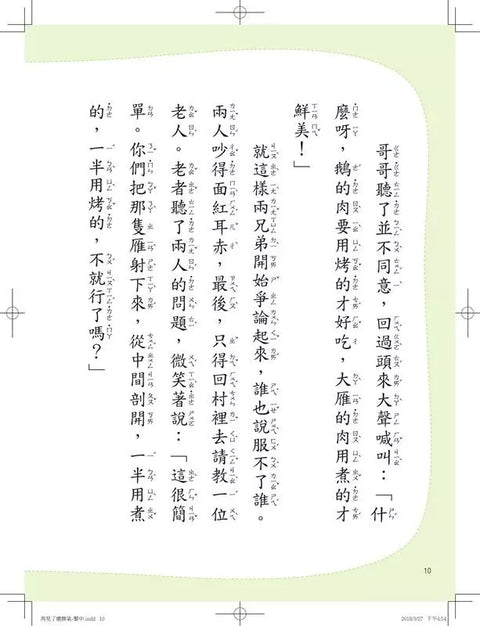 哥哥聽了並不同意，回過頭來大聲喊叫：「什
麼呀，鵝的肉要用烤的才好吃，大雁的肉用煮的才
鮮美！」
就這樣兩兄弟開始爭論起來，誰也說服不了誰。
兩人吵得面紅耳赤，最後，只得回村裡去請教一位
老人。老者聽了兩人的問題，微笑著說：「這很簡
單。你們把那隻雁射下來，從中間剖開，一半用煮
的，一半用烤的，不就行了嗎？」
10